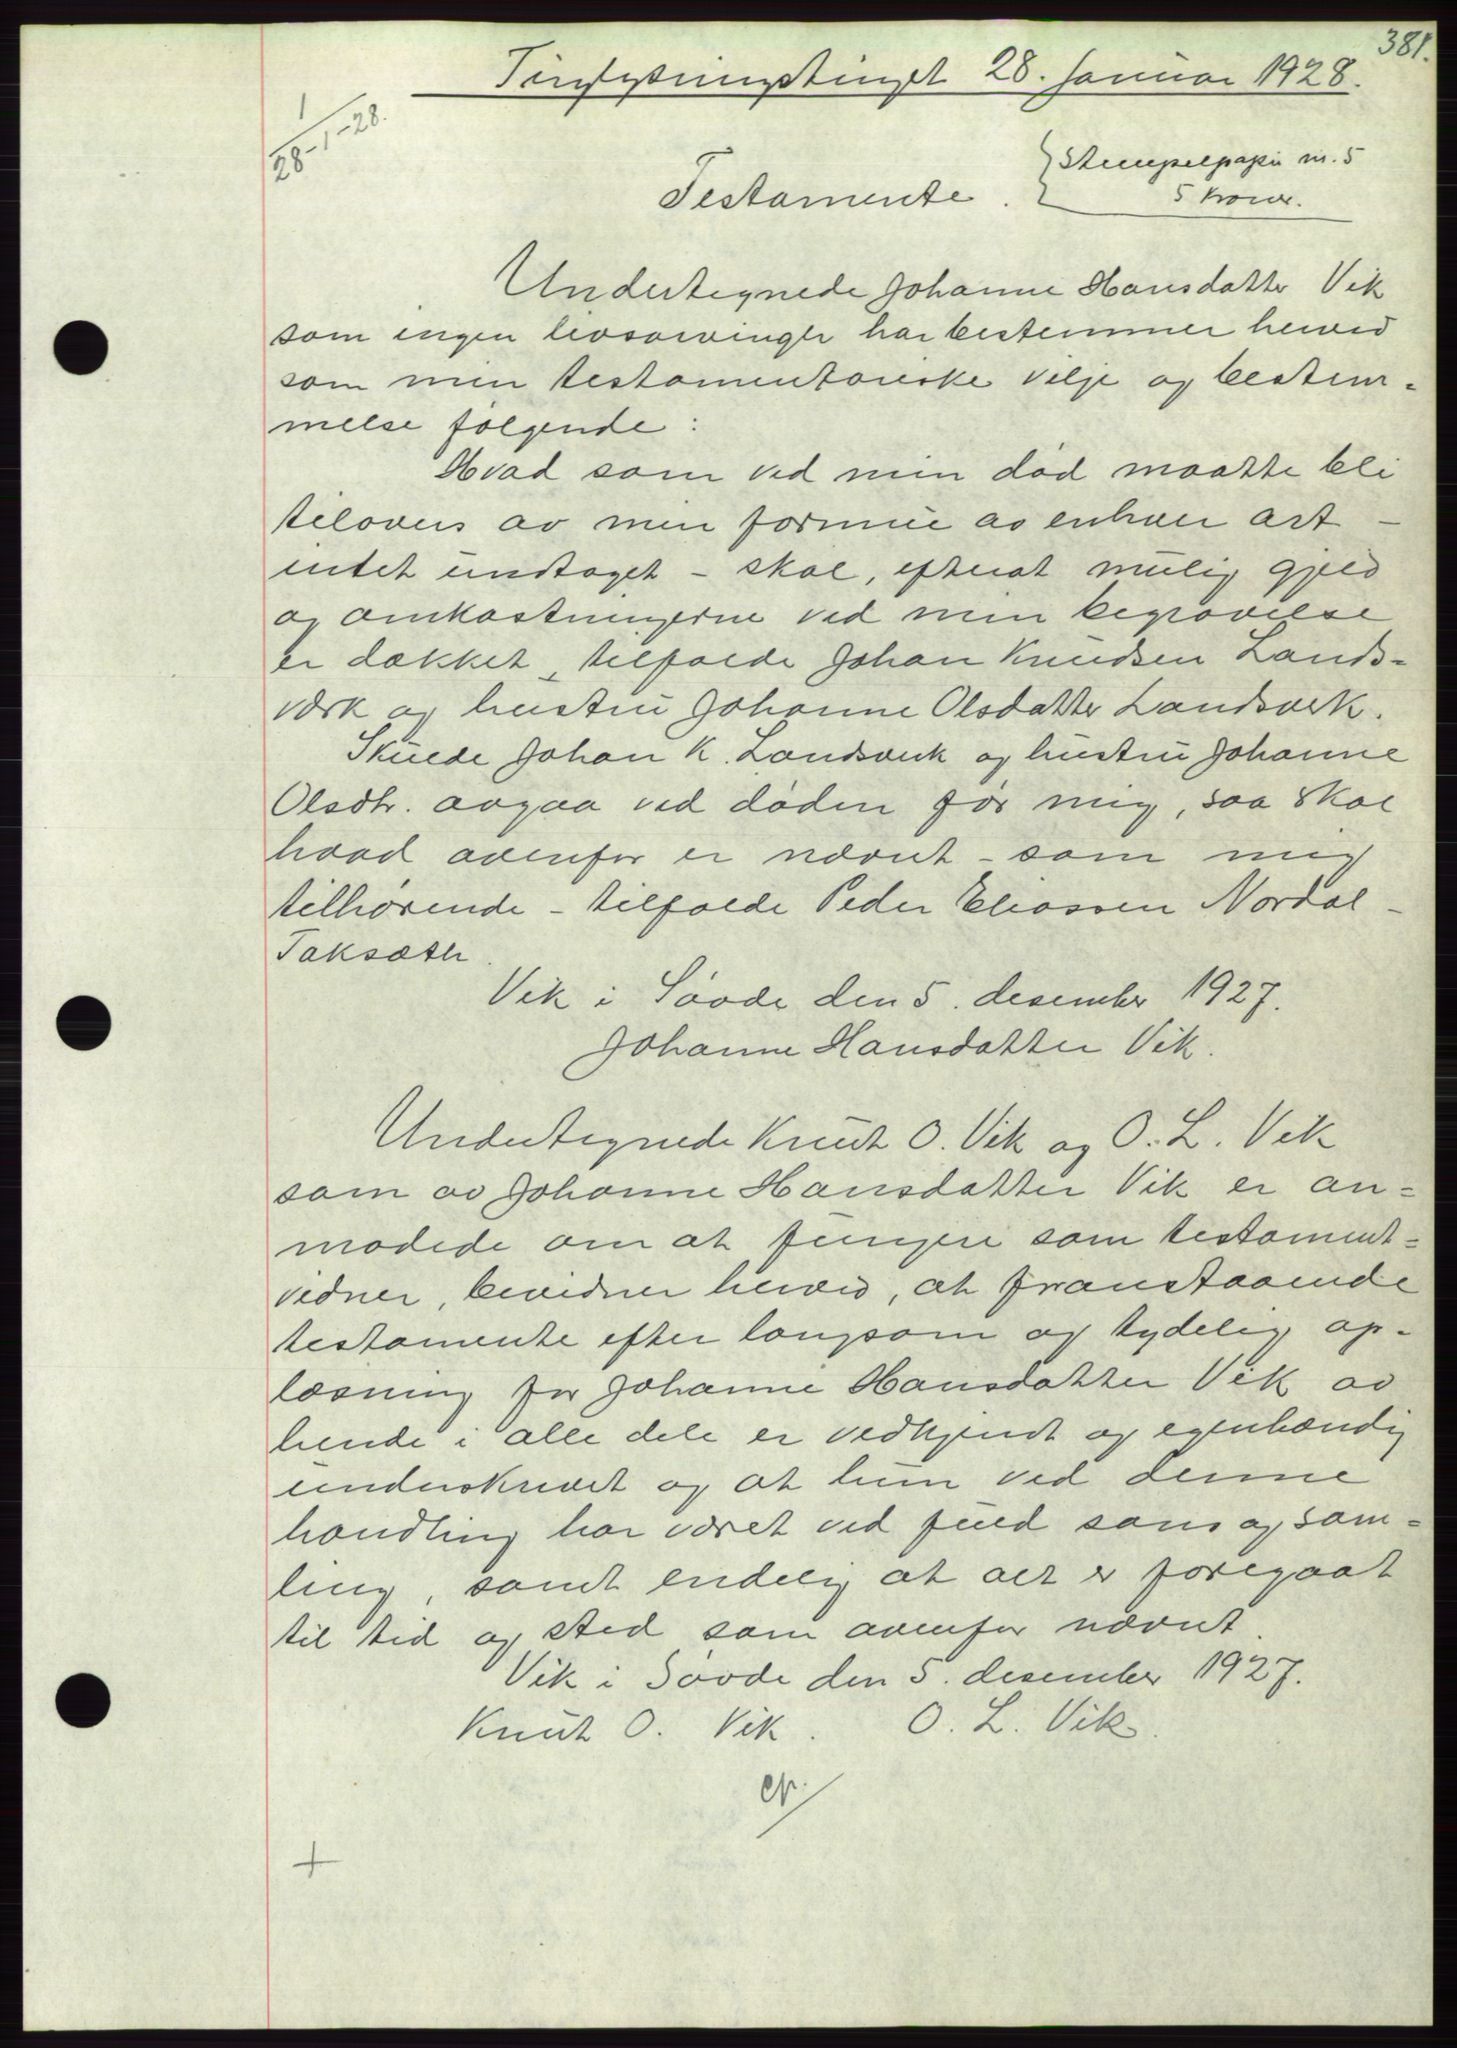 381.
Tinglysningstinget 28. januar 1928.
1
28-1-28.
Stempelpapir nr. 5
5 kroner.
Testamente.
Undertegnede Johanne Hansdatter Vik
som ingen livsarvinger har bestemmer herved
som min testamentariske vilje og bestem-
melse følgende:
Hvad som ved min død maatte bli
tilovers av min formue av enhver art -
intet undtaget - skal, efterat mulig gjeld
og omkostningerne ved min begravelse
er dækket, tilfalde Johan Knudsen Lands-
værk og hustru Johanne Olsdatter Landsverk.
Skulde Johan K. Landsverk og hustru Johanne
Olsdtr. avgaa ved døden før mig, saa skal
hvad ovenfor er nævnt - som mig
tilhørende - tilfalde Peder Eliassen Nordal-
Taksæth.
Vik i Søvde den 5. desember 1927.
Johanne Hansdatter Vik.
Undertegnede Knut O. Vik og O. L. Vik
som av Johanne Hansdatter Vik er an-
modede om at fungere som testament-
vidner, bevidner herved, at franstaaende
testamente efter langsom og tydelig op-
læsning for Johanne Hansdatter Vik av
hende i alle dele er vedkjendt og egenhændig
underskrevet og at hun ved denne
handling har været ved fuld sans og sam-
ling, samt endelig at alt er foregaat
til tid og sted som ovenfor nævnt.
Vik i Søvde den 5. desember 1927.
Knut O. Vik. O. L. Vik.